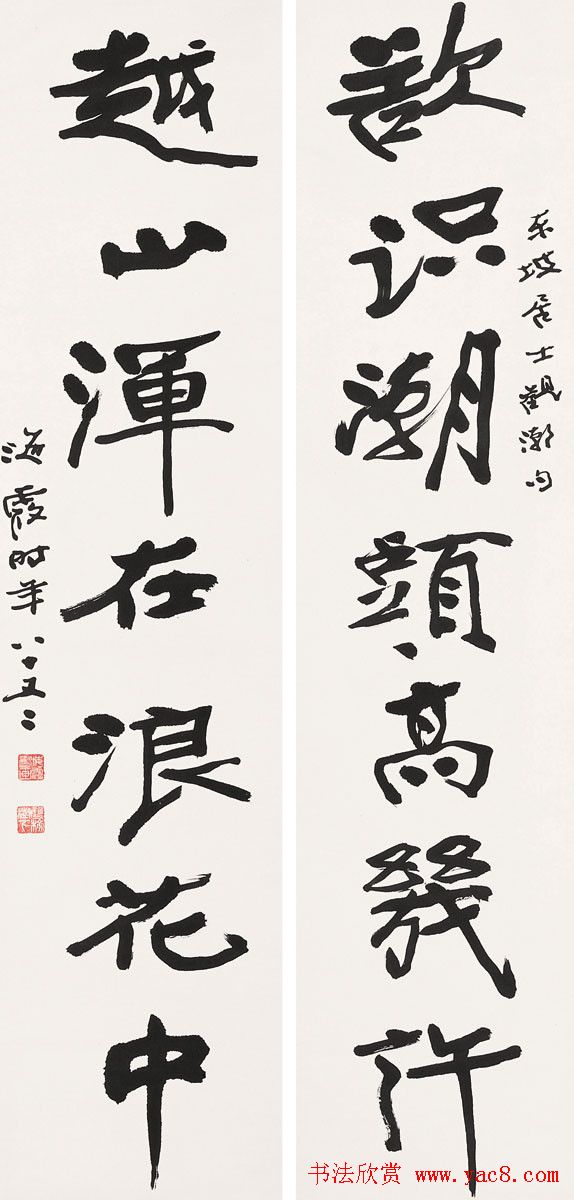 东坡居士觀潮句
欲识潮頭高幾許
越山渾在浪花中
海霞时年八十又二
书法欣赏 www.yac8.com